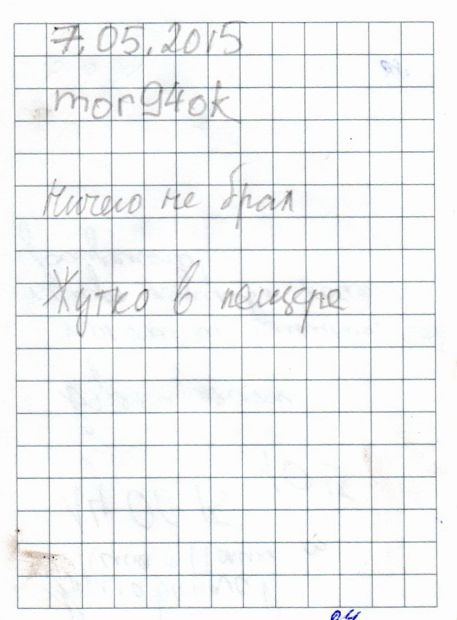 7.05.2015
mor94ok
Ничего не брал
Жутко в пещере